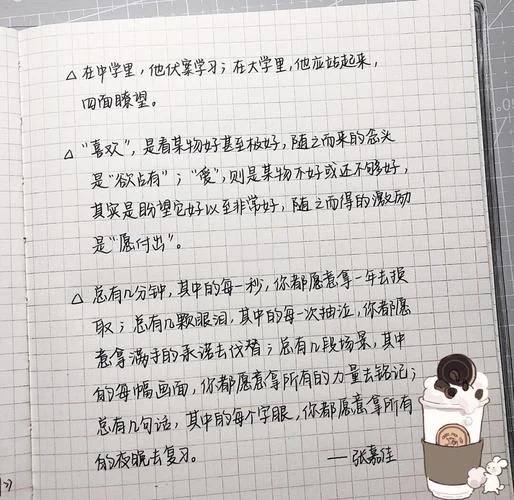 △ 在中学里，他伏案学习；在大学里，他应站起来，
四面瞭望。
△ “喜欢”，是看某物好甚至极好，随之而来的念头
是“欲占有”；“愛”，则是某物不好或还不够好，
其实是盼望它好以至非常好，随之而得的激励
是“愿付出”。
△ 总有几分钟，其中的每一秒，你都愿意拿一年去换
取；总有几颗眼泪，其中的每一次抽泣，你都愿
意拿满手的承诺去代替；总有几段场景，其中
的每幅画面，你都愿意拿所有的力量去铭记；
总有几句话，其中的每个字眼，你都愿意拿所有
的夜晚去复习。
——张嘉佳